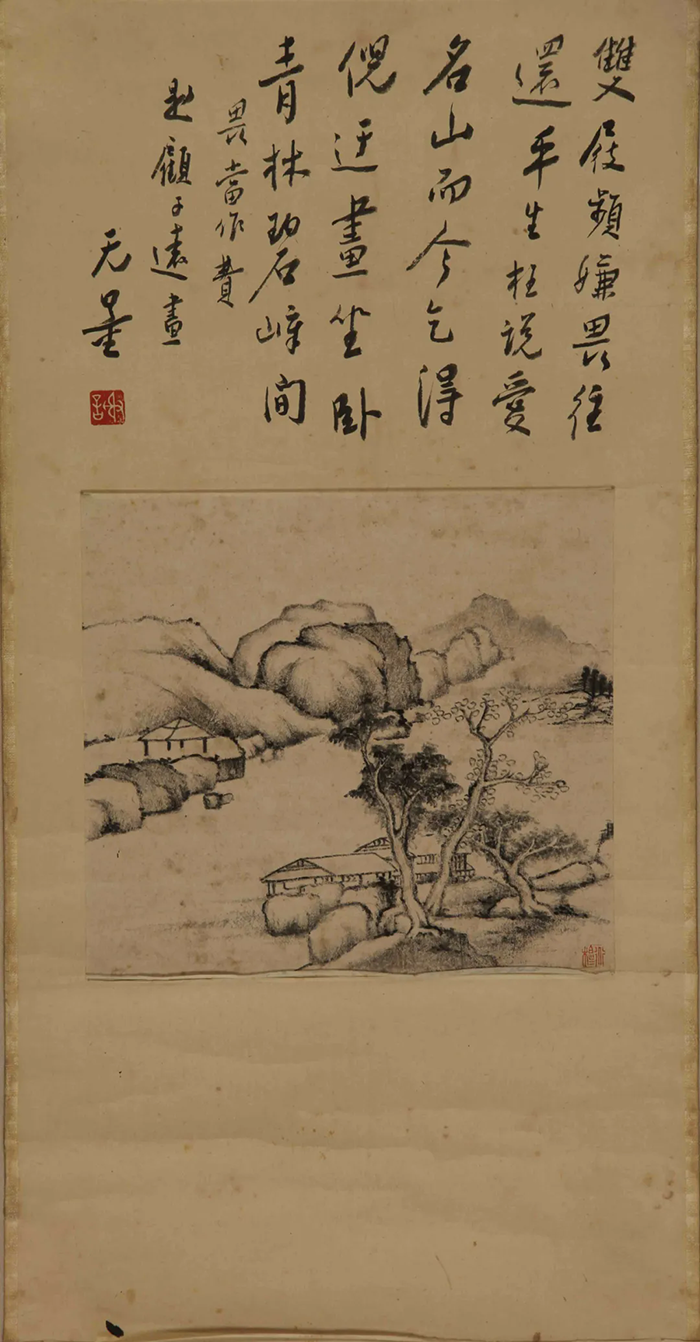 雙屐頻嫌畏往
還平生枉說愛
名山而今乞得
倪迂畫坐卧
青林碧嶂间
畏當作費
題顧子遠畫
无量